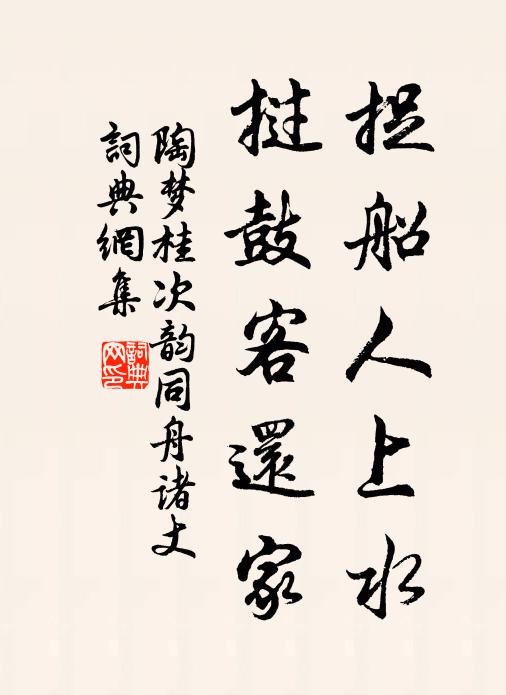 捉船人上水
挝鼓客還家
陶梦桂次韵同舟诸丈
詞典網集
詞典网印